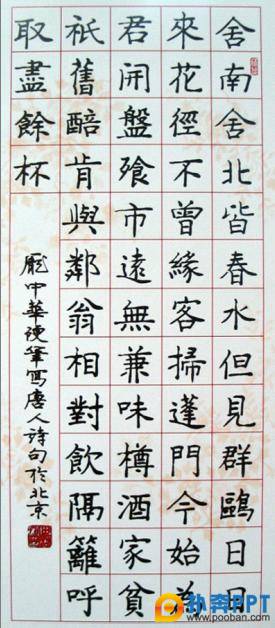 舍南舍北皆春水但見群鷗日日
來花徑不曾緣客掃蓬門今始為
君開盤飧市遠無兼味樽酒家貧
祇舊醅肯與鄰翁相對飲隔籬呼
取盡餘杯
龐中華硬筆寫唐人詩句於北京
扑奔PPT
www.pooban.com